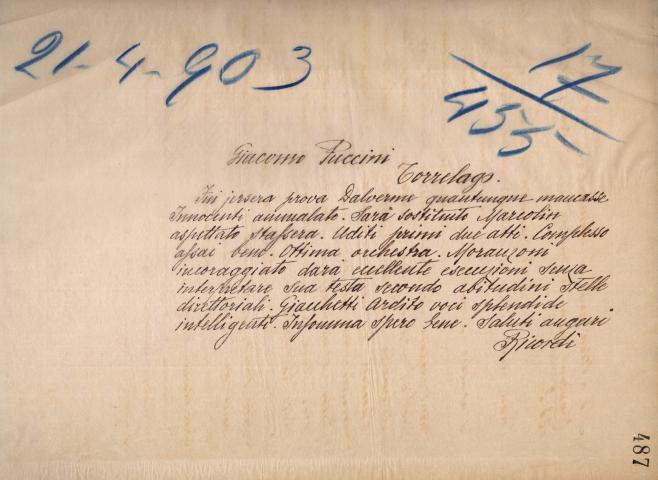 21-4-903
17
455-
Giacomo Puccini
Torrelago.
Fui jersera prova Dalverme quantunque mancasse
Innocenti ammalato. Sarà sostituito Marcolin
aspettato stassera. Uditi primi due atti. Complesso
assai bene. Ottima orchestra. Moranzoni
incoraggiato darà eccellente esecuzioni senza
interpretare sua testa secondo abitudini stelle
direttoriali. Giacchetti Ardito voci splendide
intelligenti. Insomma spero bene. Saluti auguri
Ricordi
487